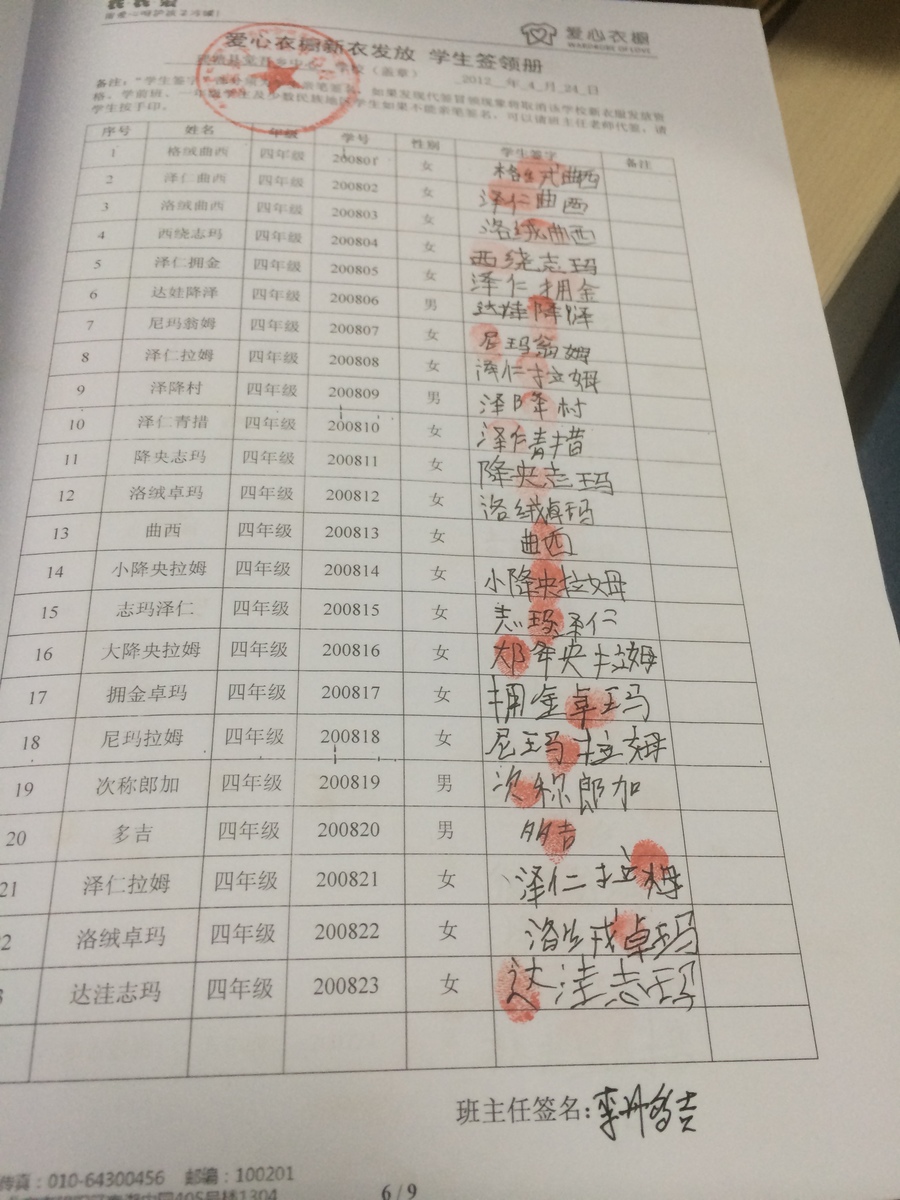 爱心衣橱
WARDROBE OF LOVE
爱心衣橱新衣发放 学生签领册
学校（盖章） 2012 年 4 月 24 日
备注："学生签字 亲笔签 ，如果发现代签冒领现象将取消该学校新衣服发放资
格。学前班、一年级学生及少数民族地区学生如果不能亲笔签名，可以请班主任老师代签，请
学生按手印。
序号 姓名 年级 学号 性别 学生签字 备注
1 格绒曲西 四年级 200801 女 格绒曲西
2 泽仁曲西 四年级 200802 女 泽仁曲西
3 洛绒曲西 四年级 200803 女 洛绒曲西
4 西绕志玛 四年级 200804 女 西绕志玛
5 泽仁拥金 四年级 200805 女 泽仁拥金
6 达娃降泽 四年级 200806 男 达娃降泽
7 尼玛翁姆 四年级 200807 女 尼玛翁姆
8 泽仁拉姆 四年级 200808 女 泽仁拉姆
9 泽降村 四年级 200809 男 泽降村
10 泽仁青措 四年级 200810 女 泽仁青措
11 降央志玛 四年级 200811 女 降央志玛
12 洛绒卓玛 四年级 200812 女 洛绒卓玛
13 曲西 四年级 200813 女 曲西
14 小降央拉姆 四年级 200814 女 小降央拉姆
15 志玛泽仁 四年级 200815 女 志玛泽仁
16 大降央拉姆 四年级 200816 女 大降央拉姆
17 拥金卓玛 四年级 200817 女 拥金卓玛
18 尼玛拉姆 四年级 200818 女 尼玛拉姆
19 次称郎加 四年级 200819 男 次称郎加
20 多吉 四年级 200820 男 多吉
21 泽仁拉姆 四年级 200821 女 泽仁拉姆
2 洛绒卓玛 四年级 200822 女 洛绒卓玛
3 达洼志玛 四年级 200823 女 达洼志玛
班主任签名：李丹多吉
传真：010-64300456 邮编：100201
405号楼1304
6 / 9